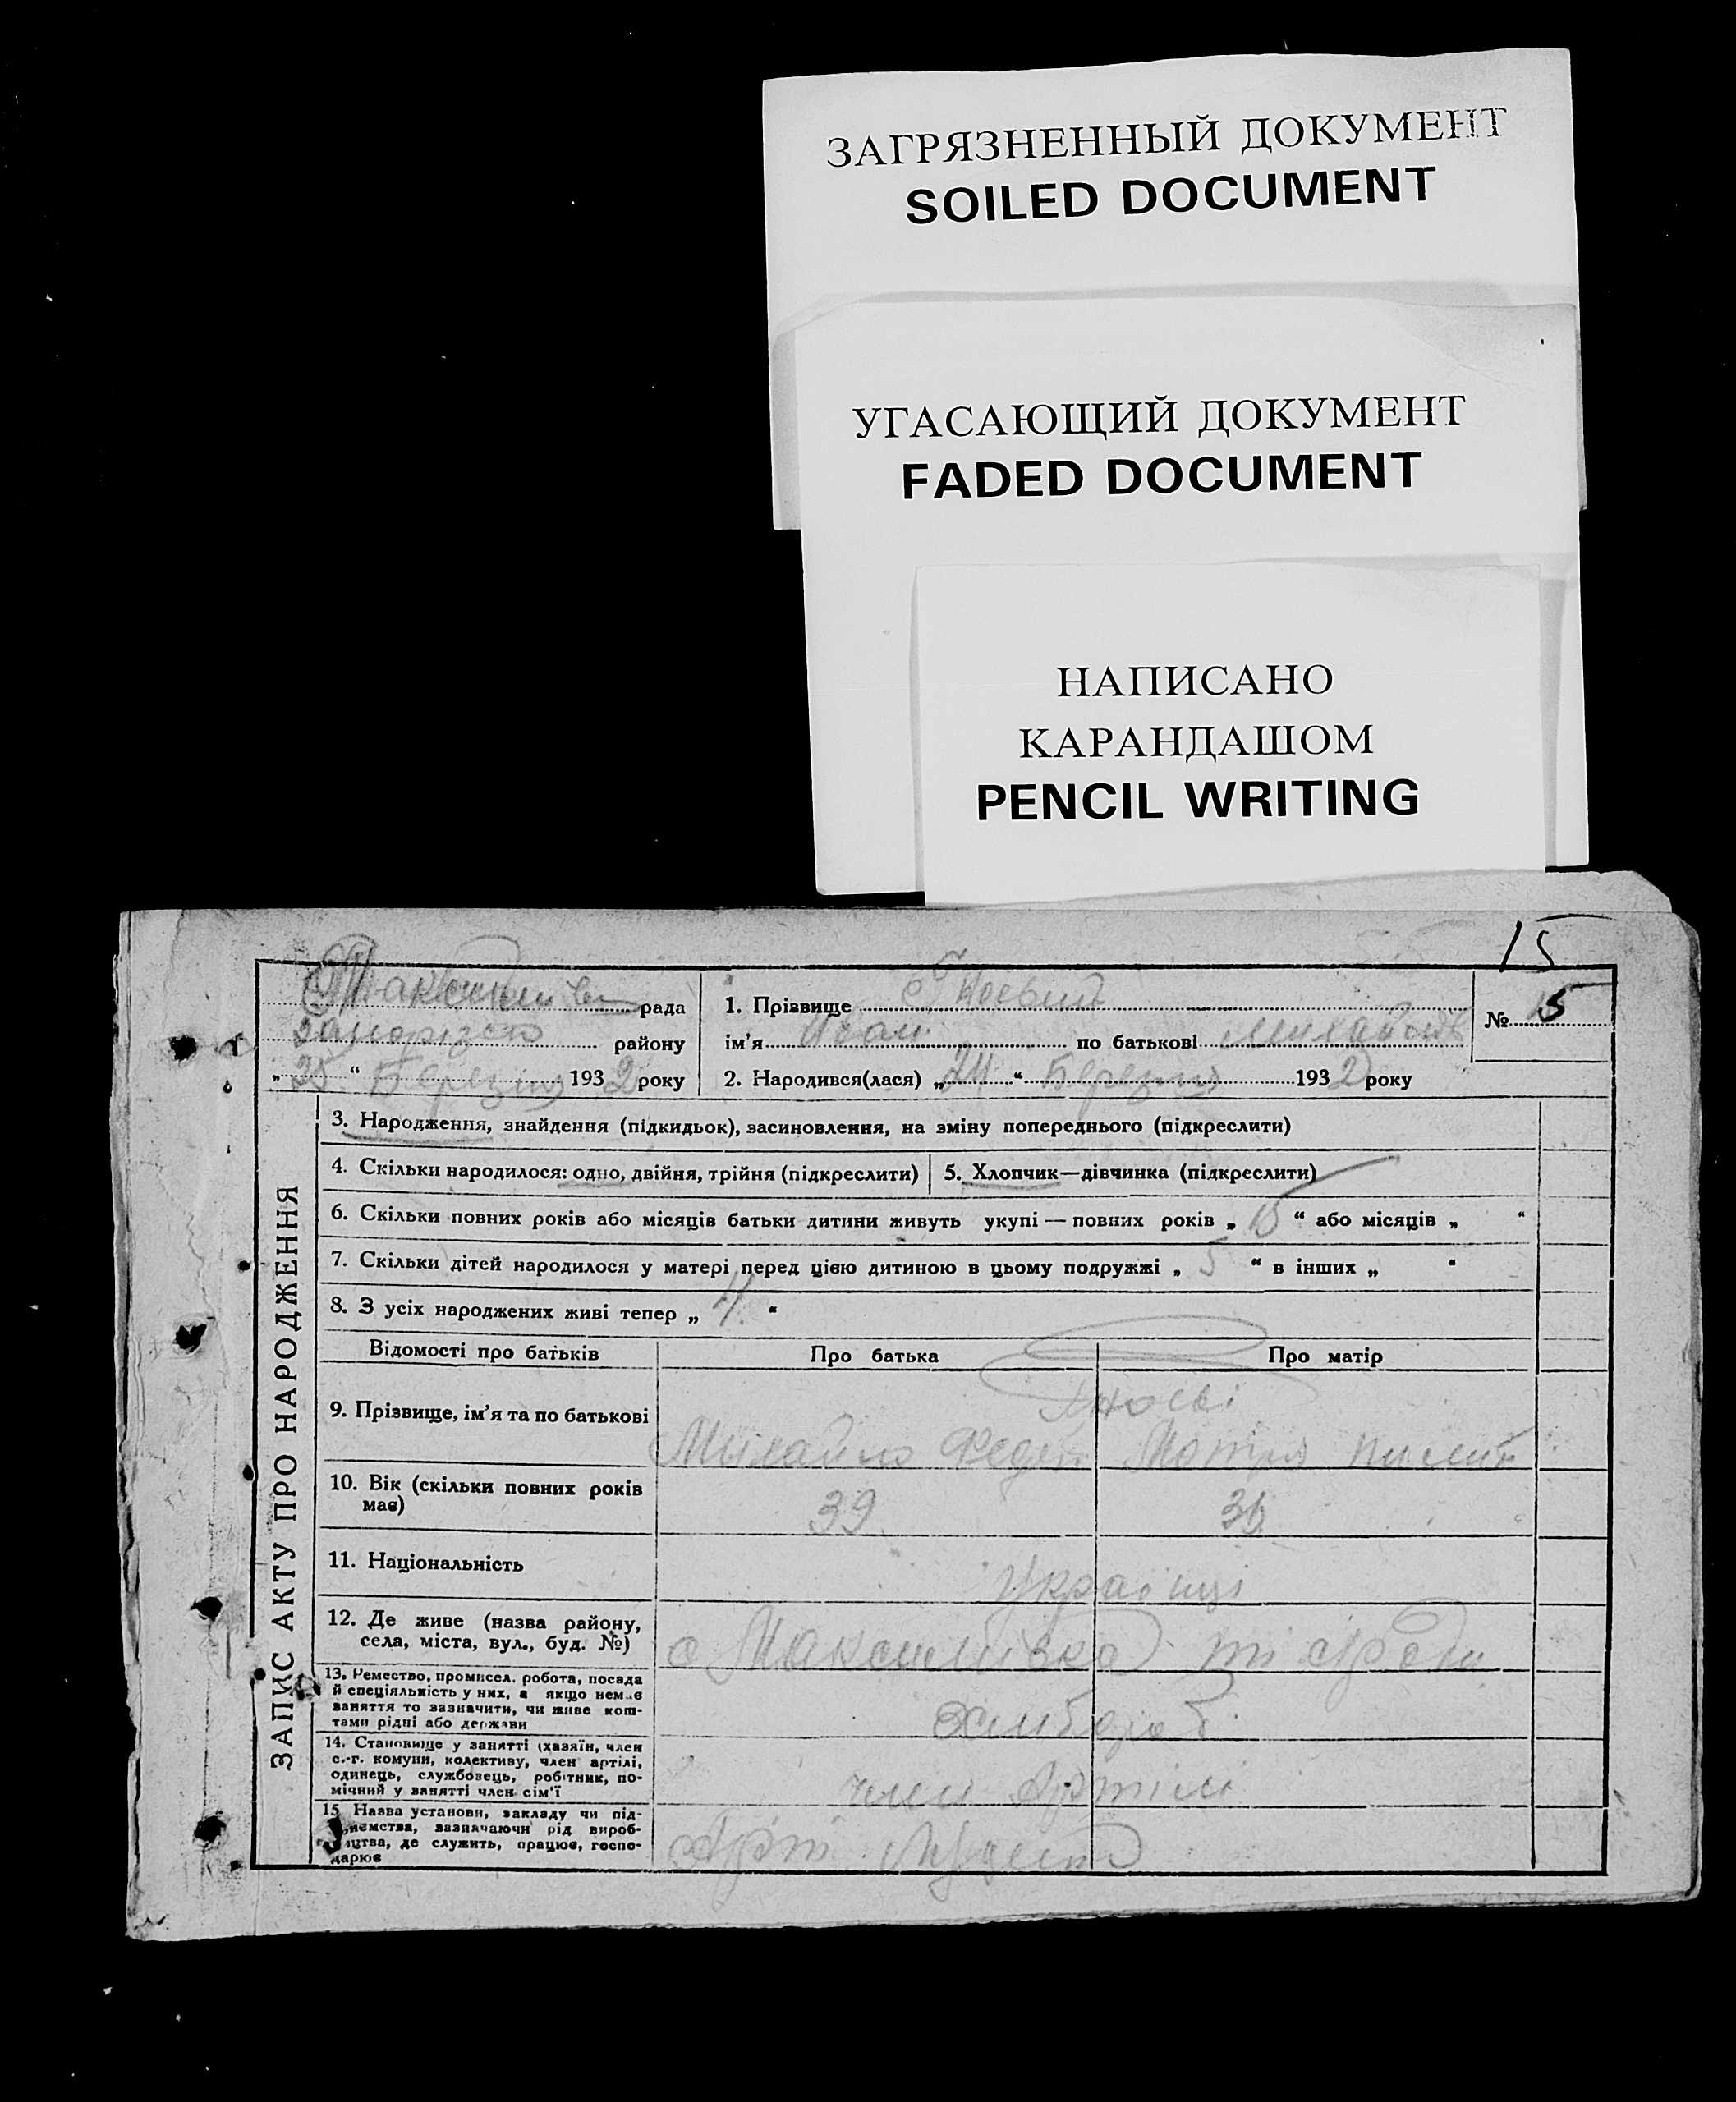 ЗАГРЯЗНЕННЫЙ ДОКУМЕНТ
SOILED DOCUMENT
УГАСАЮЩИЙ ДОКУМЕНТ
FADED DOCUMENT
НАПИСАНО
КАРАНДАШОМ
PENCIL WRITING
15
рада
району
„ 25 “ Березня 1932 року
1. Прізвище
ім'я Іван по батькові
2. Народився(лася) „ 24 “ Березня 1932 року
№ 15
ЗАПИС АКТУ ПРО НАРОДЖЕННЯ
3. Народження, знайдення (підкидьок), засиновлення, на зміну попереднього (підкреслити)
4. Скільки народилося: одно, двійня, трійня (підкреслити)
5. Хлопчик—дівчинка (підкреслити)
6. Скільки повних років або місяців батьки дитини живуть укупі — повних років „ 15 “ або місяців „ “
7. Скільки дітей народилося у матері перед цією дитиною в цьому подружжі „ 5 “ в інших „ “
8. З усіх народжених живі тепер „ 4 “
Відомості про батьків
Про батька
Про матір
9. Прізвище, ім'я та по батькові
Михайло Федор
Мотря
10. Вік (скільки повних років
має)
39
11. Національність
Українці
12. Де живе (назва району,
села, міста, вул., буд. №)
13. Ремество, промисел, робота, посада
й спеціяльність у них, а якщо немає
заняття то зазначити, чи живе кош-
тами рідні або держави
14. Становище у занятті (хазяїн, член
с.-г. комуни, колективу, член артілі,
одинець, службовець, робітник, по-
мічний у занятті член сім'ї
член Артілі
15. Назва установи, закладу чи під-
приємства, зазначаючи рід вироб-
ництва, де служить, працює, госпо-
дарює